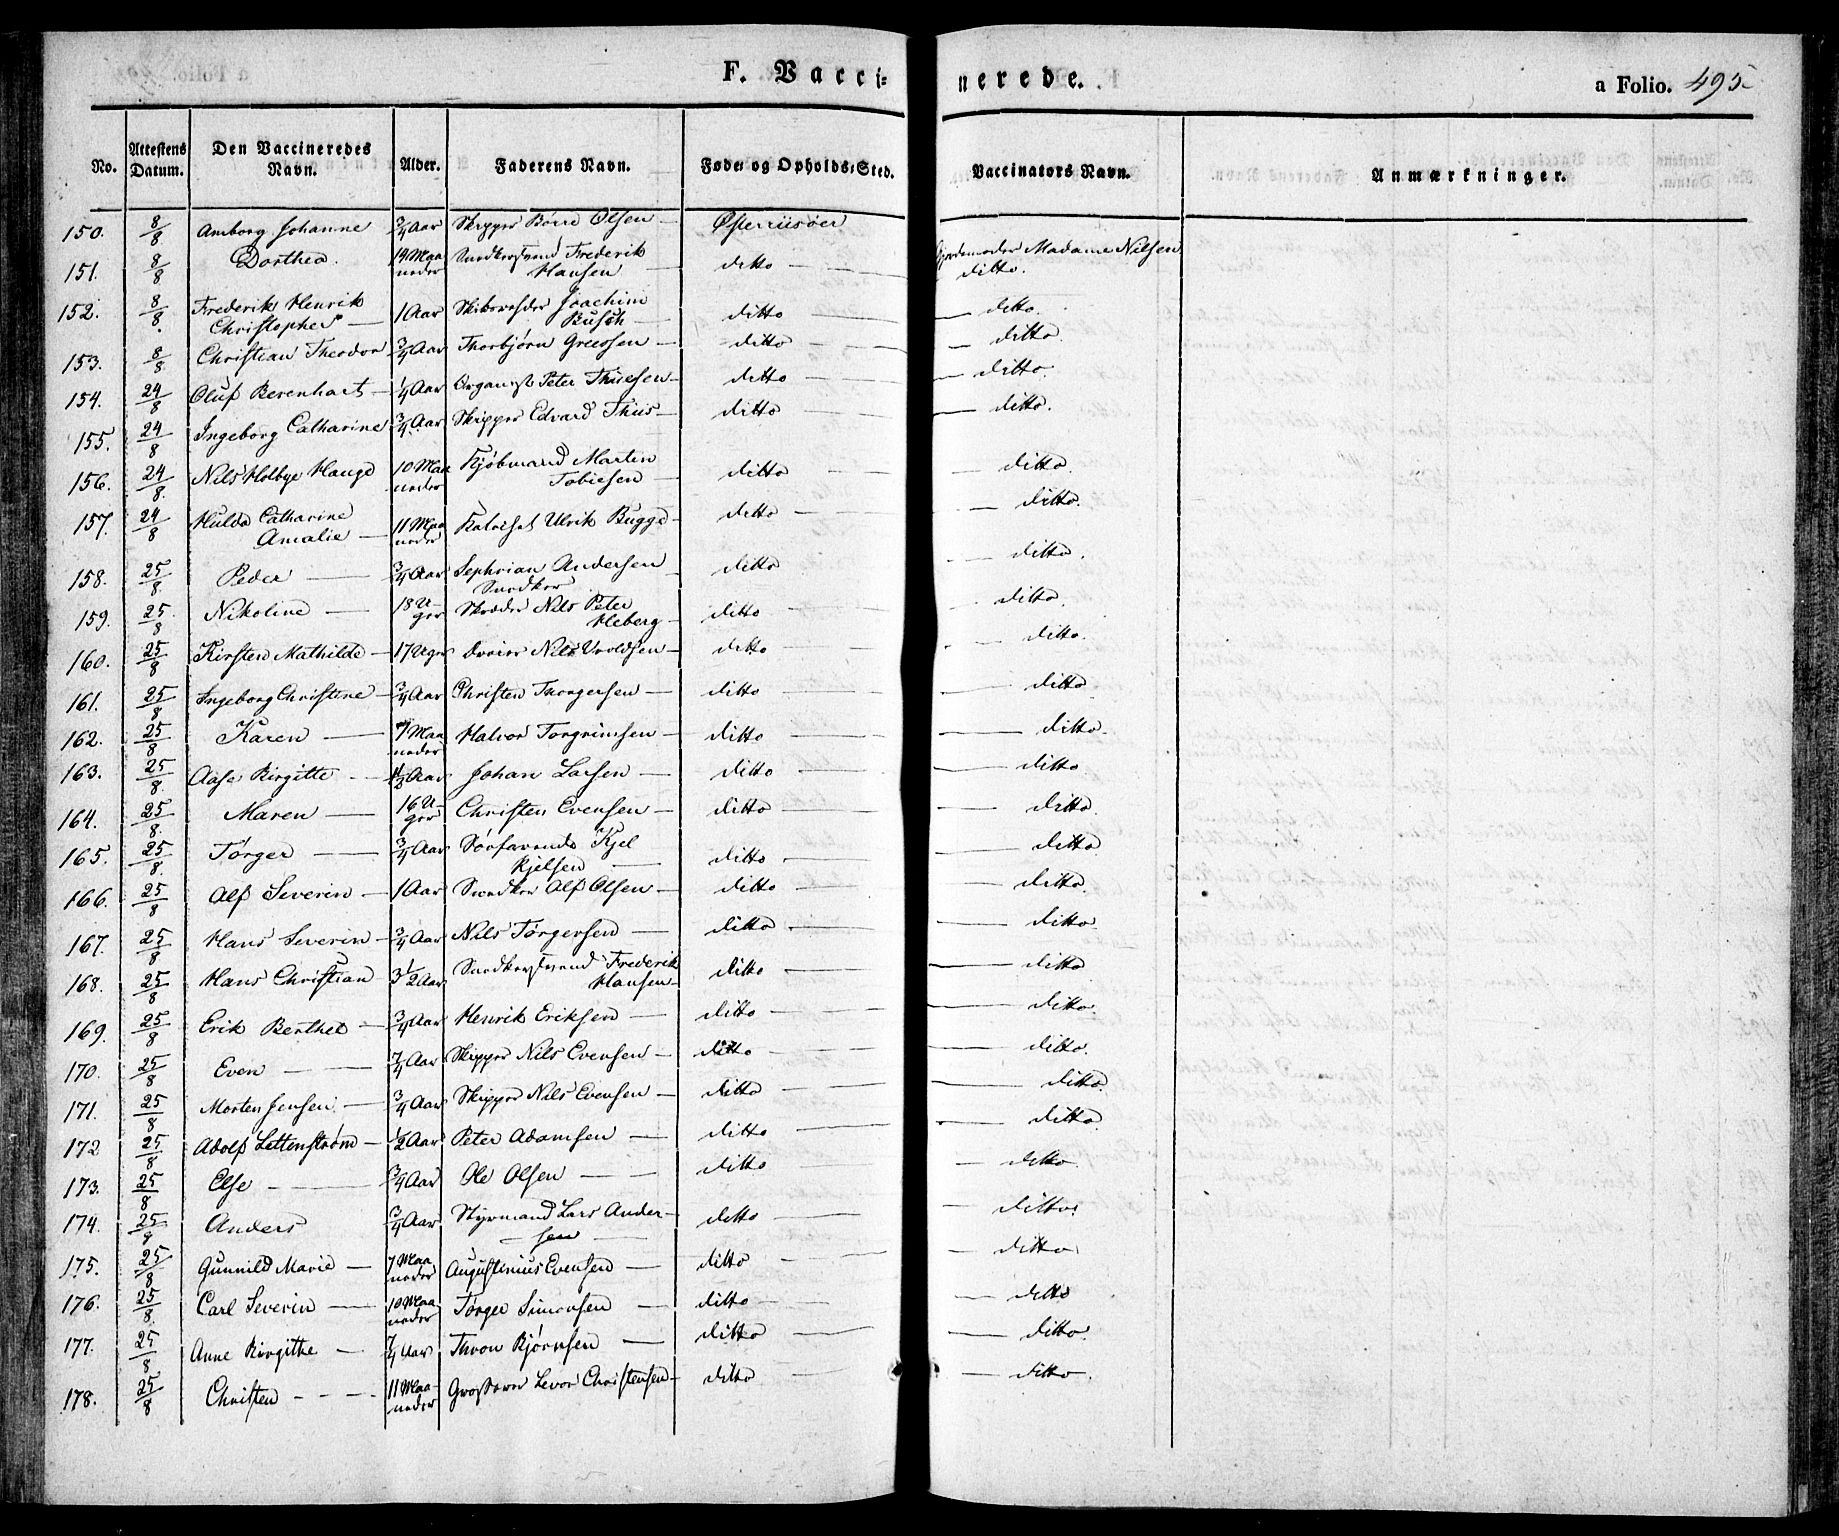 F. Vacci=
nerede.
a Folio. 495.
No. Attestens Datum. Den Vaccineredes Navn. Alder. Faderens Navn. Føde= og Opholds=Sted. Vaccinators Navn. Anmærkninger.
150. 8/8 Anborg Johanne 3/4 Aar Skipper Börre Olsen — Østerriisöer Gjordemoder Madame Nilsen
151. 8/8 Dorthea. 14 Maa neder Snedkersvend Frederik Hansen — ditto — ditto.
152. 8/8 Frederik Henrik Christopher — 1 Aar Skibsreder Joachim Busch — ditto — ditto.
153. 8/8 Christian Theodor 3/4 Aar Thorbjörn Greesen — ditto — ditto.
154. 24/8 Oluf Berenhart — 1/4 Aar Organist Peter Thiesen — ditto — ditto.
155. 24/8 Ingeborg Catharine 3/4 Aar Skipper Edvard Thiis — ditto — ditto.
156. 24/8. Nils Holbye Hauge 10 Maa neder Kjöbmand Martin Tobiesen — ditto — ditto.
157. 24/8 Hulda Catharine Amalie — 11 Maa neder Ulrik Bugge — ditto — ditto.
158. 25/8. Peder — 3/4 Aar Sephrian Andersen Snedker ditto — ditto.
159. 25/8 Nikoline — 18 U- ger Skræder Nils Peter Heberg — ditto — ditto.
160. 25/8 Kirsten Mathilde — 17 Uger Dreier Nils Uvoldsen — ditto — ditto.
161. 25/8 Ingeborg Christine — 3/4 Aar Christen Thorgersen — ditto — ditto.
162. 25/8 Karen — 7 Maa neder Halvor Torgrimsen — ditto — ditto.
163. 25/8. Aase Birgitte — 1 1/2 Aar Johan Larsen — ditto — ditto
164. 25/8. Maren — 16 U- ger Christen Evensen — ditto — ditto.
165. 25/8. Törger — 3/4 Aar Söefarende Kjel Kjelsen — ditto — ditto.
166. 25/8 Alf Severin — 1 Aar Snedker Alf Olsen — ditto — ditto.
167. 25/8 Hans Severin — 3/4 Aar Nils Törgersen — ditto — ditto
168. 25/8 Hans Christian 3 1/2 Aar Snedkersvend Frederik Hansen — ditto — ditto
169. 25/8 Erik Berthel — 3/4 Aar Henrik Eriksen — ditto — ditto.
170. 25/8 Even — 7/4 Aar Skipper Nils Evensen — ditto — ditto.
171. 25/8 Morten Jensen — 3/4 Aar Skipper Nils Evensen — ditto — ditto.
172 25/8 Adolf Lettenström — 1/2 Aar Peter Adamsen — ditto — ditto.
173. 25/8 Else — 3/4 Aar Ole Olsen — ditto — ditto.
174. 25/8 Anders 3/4 Aar Styrmand Lars Ander- sen — ditto — ditto.
175. 25/8 Gunnild Marie — 7 Maa neder Augustinius Evensen — ditto — ditto
176. 25/8. Carl Severin — 10 Maa neder Törger Simonsen — ditto — ditto
177. 25/8 Anne Birgithe — 7/4 Aar Thron Bjørnsen — ditto — ditto.
178. 25/8 Christen — 11 Maa- neder Grosserer Levor Christensen — ditto — ditto.